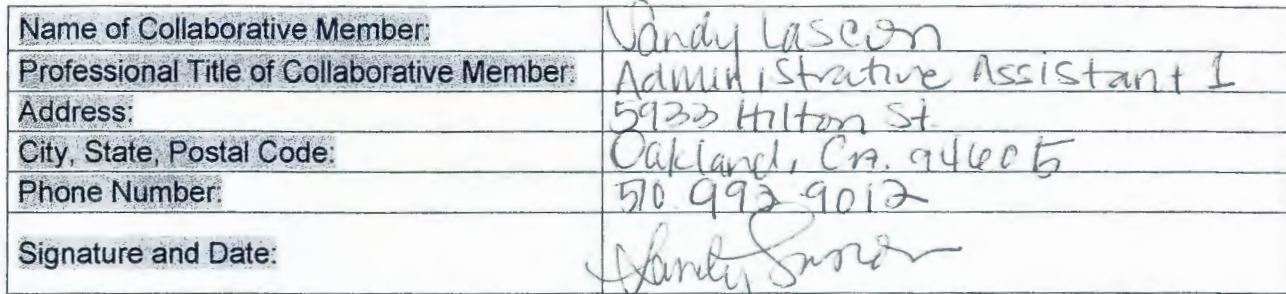 Name of Collaborative Member: Vandy Lascon
Professional Title of Collaborative Member: Administrative Assistant 1
Address: 5933 Hilton St.
City, State, Postal Code: Oakland, CA. 94605
Phone Number: 510 992 9012
Signature and Date: